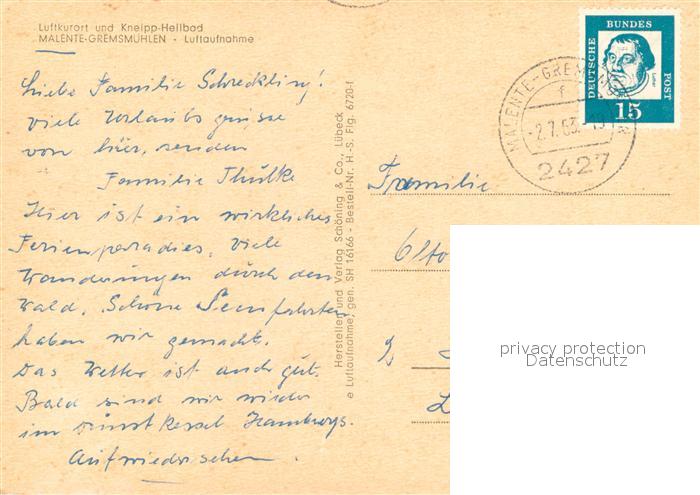 Luftkurort und Kneipp-Heilbad
MALENTE-GREMSMÜHLEN - Luftaufnahme
Liebe Familie Schreckling!
viele Urlaubsgrüsse
von hier, senden
Familie Thülke
Hier ist ein wirkliches
Ferienparadies, viele
Wanderungen durch den
Wald. Schöne Seenfahrten
haben wir gemacht.
Das Wetter ist auch gut.
Bald sind wir wieder
im Dunstkessel Hamburgs.
Aufwiedersehen.
Hersteller und Verlag Schöning & Co., Lübeck
Luftaufnahme gen. SH 16166 - Bestell-Nr. H.-S. Flg. 6720-f
DEUTSCHE
BUNDES
POST
Luther
15
MALENTE-GREMSMÜHLEN
f
-2.7.63.-19
2427
Familie
Otto
privacy protection
Datenschutz